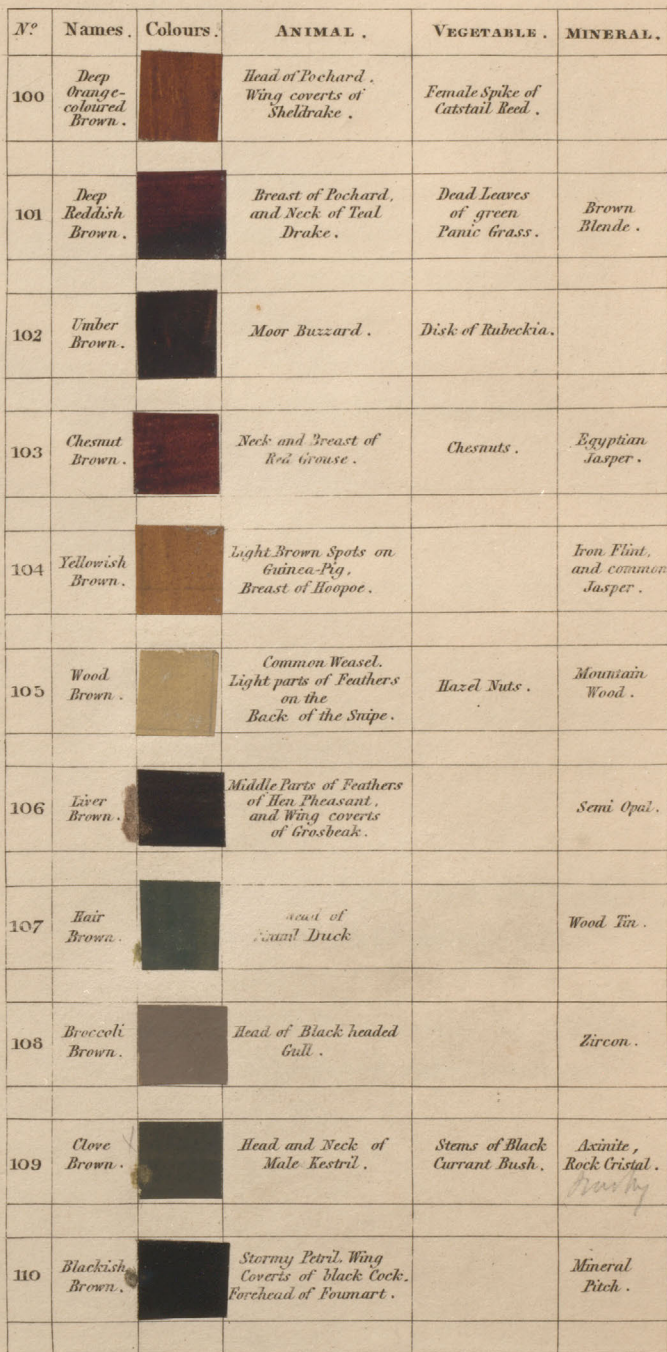 Nº Names. Colours. ANIMAL. VEGETABLE. MINERAL.
100
Deep
Orange-
coloured
Brown.
Head of Pochard.
Wing coverts of
Sheldrake.
Female Spike of
Catstail Reed.
101
Deep
Reddish
Brown.
Breast of Pochard,
and Neck of Teal
Drake.
Dead Leaves
of green
Panic Grass.
Brown
Blende.
102
Umber
Brown.
Moor Buzzard.
Disk of Rubeckia.
103
Chesnut
Brown.
Neck and Breast of
Red Grouse.
Chesnuts.
Egyptian
Jasper.
104
Yellowish
Brown.
Light Brown Spots on
Guinea-Pig.
Breast of Hoopoe.
Iron Flint,
and common
Jasper.
105
Wood
Brown.
Common Weasel.
Light parts of Feathers
on the
Back of the Snipe.
Hazel Nuts.
Mountain
Wood.
106
Liver
Brown.
Middle Parts of Feathers
of Hen Pheasant,
and Wing coverts
of Grosbeak.
Semi Opal.
107
Hair
Brown.
of
Duck
Wood Tin.
108
Broccoli
Brown.
Head of Black headed
Gull.
Zircon.
109
Clove
Brown.
Head and Neck of
Male Kestril.
Stems of Black
Currant Bush.
Axinite,
Rock Cristal.
110
Blackish
Brown.
Stormy Petril. Wing
Coverts of black Cock.
Forehead of Foumart.
Mineral
Pitch.